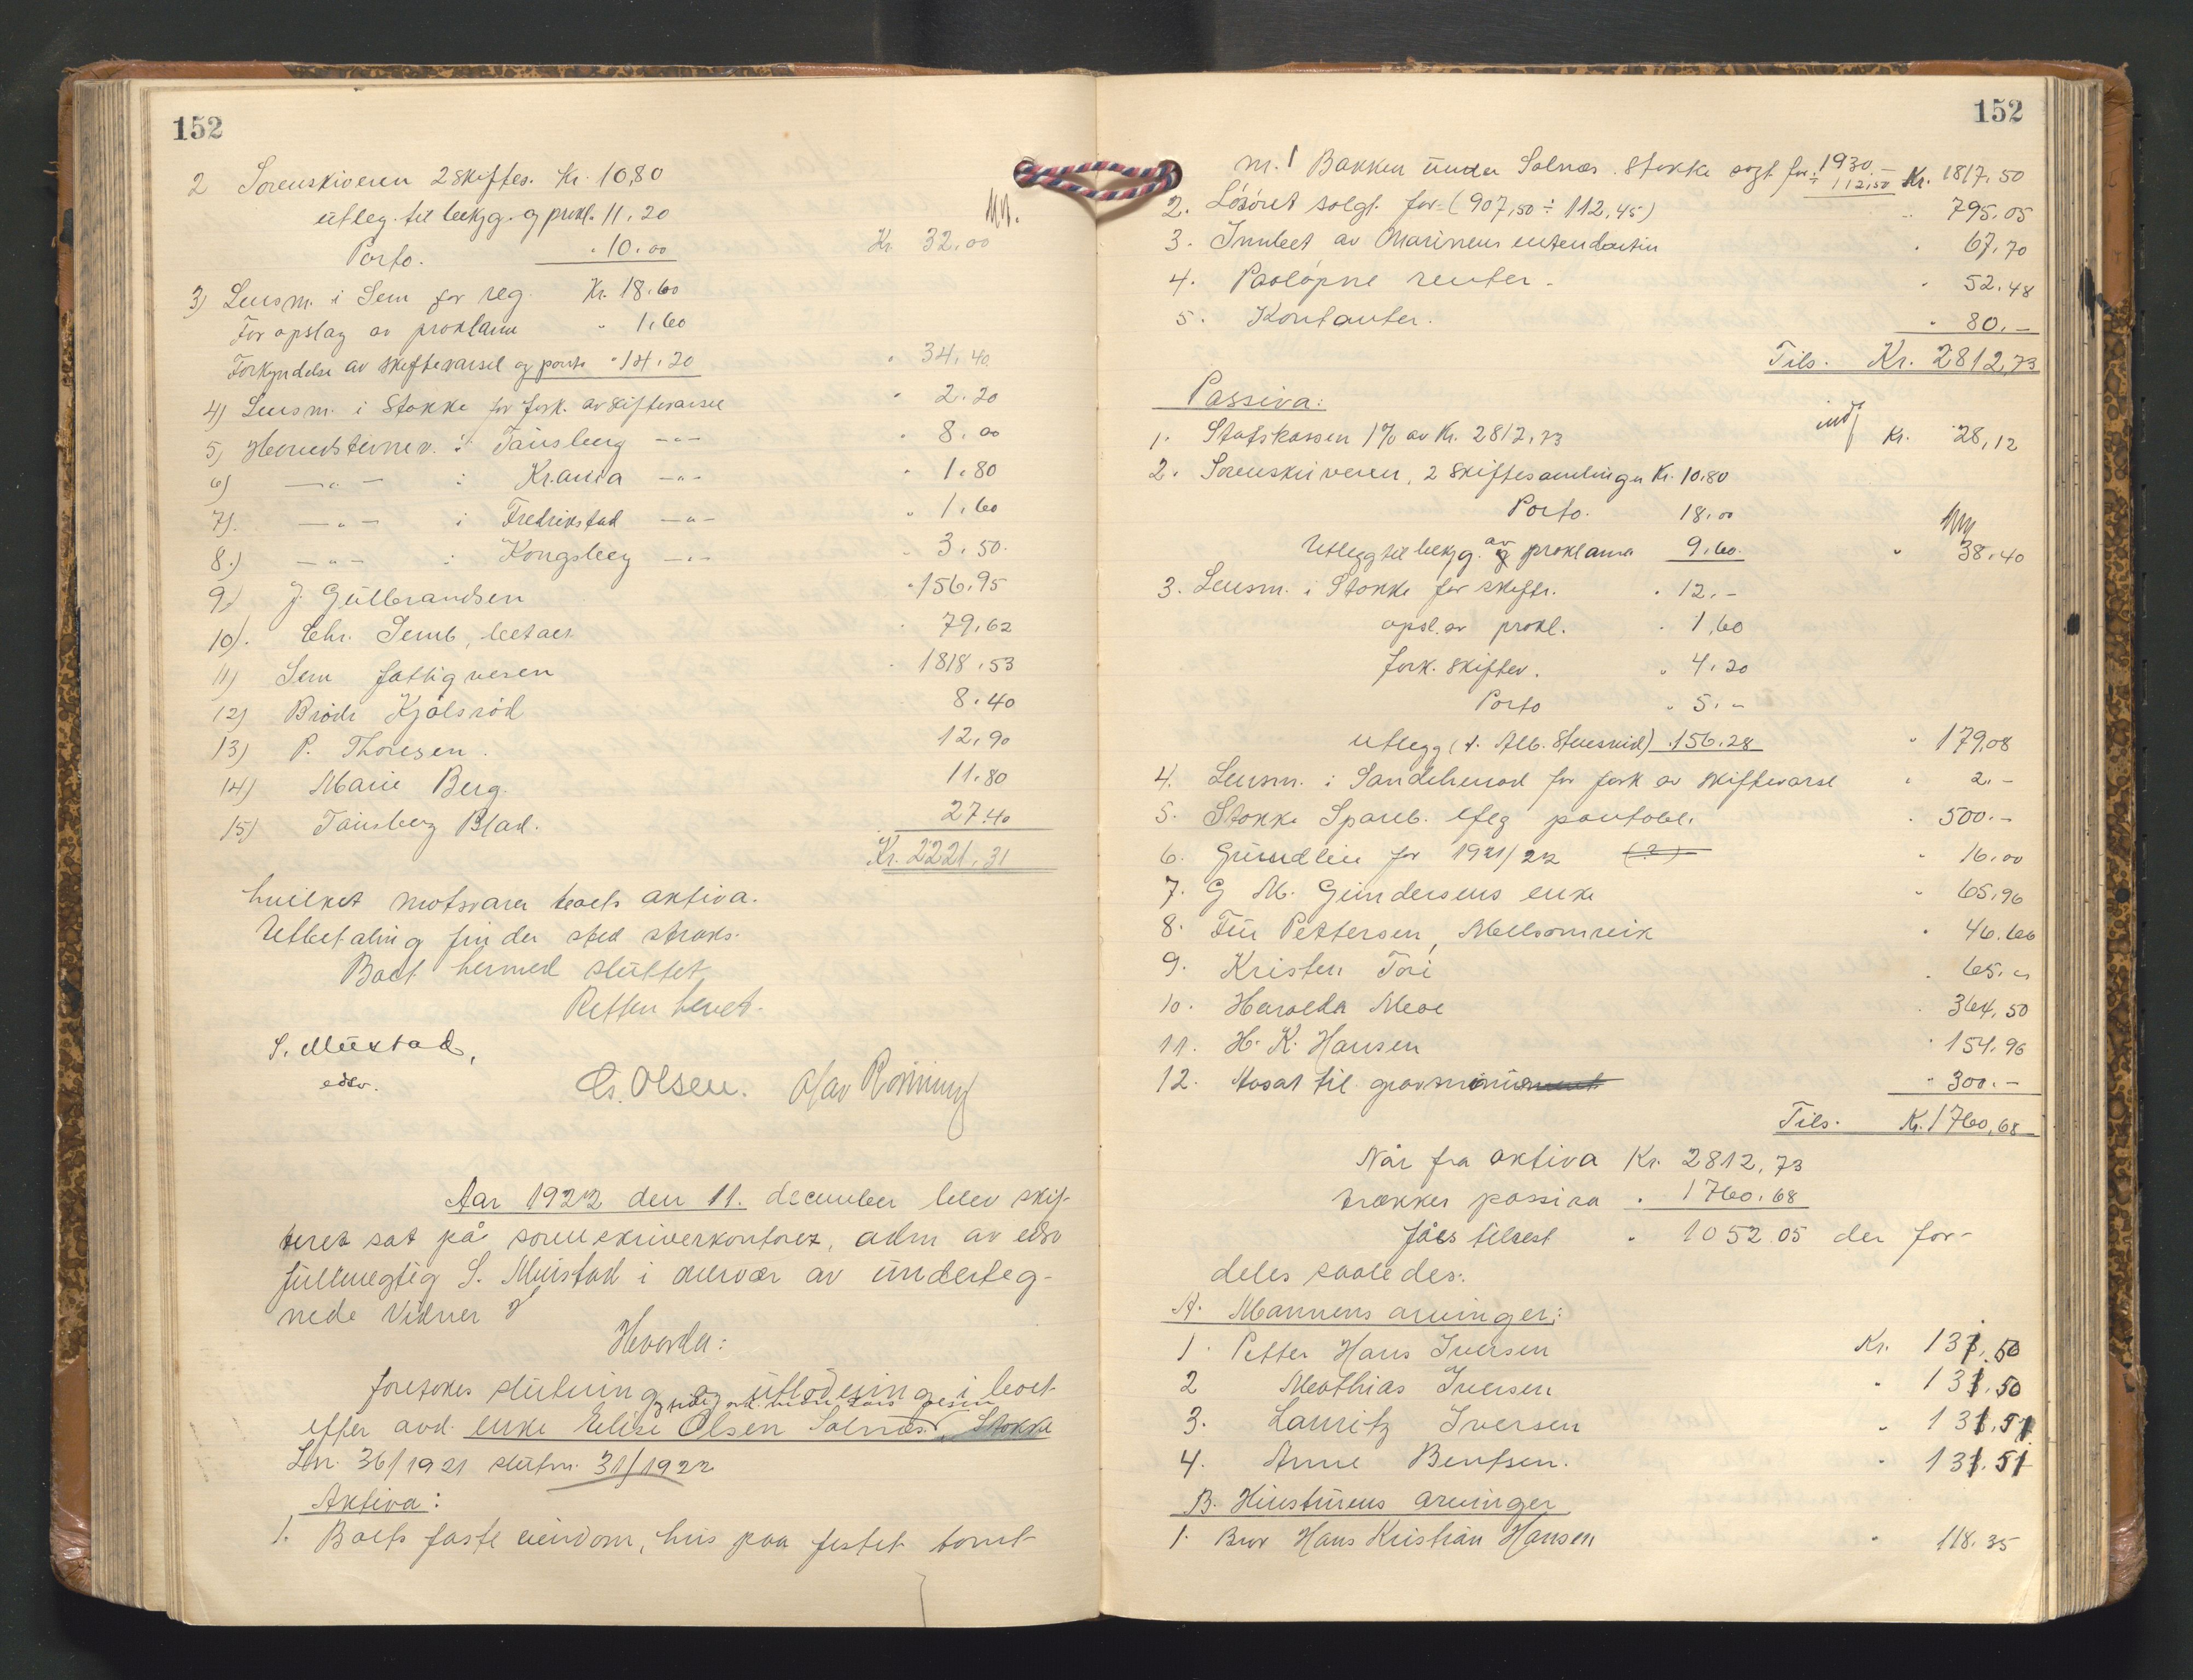 152
2 Sorenskiveren 2 skiftes. Kr. 10,80
utleg. til bekjg. og prokl. 11,20
Porto. " 10.00 Kr. 32.00
3) Lensm. i Sem for reg. Kr. 18.60
For opslag av proklama " 1,60
Forkyndelse av skiftevarsel og porto " 14.20 " 34,40
4) Lensm. i Stokke for fork. av skiftevarsel " 2.20
5) Herredsteinev. i Tønsberg -"- " 8.00
6) -"- : Kr.ania -"- " 1.80
7). -"- i Fredrikstad -"- " 1,60
8.) -"- : Kongsberg -"- " 3.50.
9) J. Gulbrandsen " 156,95
10). Chr. Semb, 79,62
11) Sem fattigvesen 1818,53
12) Brødr Kjølsrød 8.40
13) P. Thoresen. 12,90
14) Marie Berg. 11.80
15) Tønsberg Blad. 27.40
Kr. 2221,31
hvilket motsvarer boets aktiva.
Utbetaling finder sted straks.
Boet hermed sluttet
Retten hevet.
S. Mustad,
edsv.
Cs. Olsen. Olav Rønning
Aar 1922 den 11. december blev skif-
teret sat på sorenskriverkontoret, adm av edsv
fullmegtig S. Mustad i overvær av underteg-
nede vidner
Hvorda:
foretokes slutning og utlodning i boet
efter avd. enke Elise Olsen Solnæs, Stokke
Lnr. 36/1921 slutn. 31/1922
Aktiva:
1. Boets faste eiendom, hus paa festet tomt
152
nr. 1 Bakken under Solnæs. Stokke solgt for 1930.- ÷ 112,50 Kr. 1817.50
2. Løsøret solgt for (907,50 ÷ 112,45) " 795.05
3. Innbet av Marinens intendantur " 67,70
4. Paaløpne renter - " 52.48
5. Kontanter. " 80.-
Tils. Kr. 2812,73
Passiva:
1. Statskassen 1% av Kr. 2812,73 Kr. 28,12
2. Sorenskriveren, 2 skiftesamlinger Kr. 10.80
Porto. 18.00
Utlegg til bekjg. av proklama 9.60. " 38.40
3. Lensm. i Stokke for skiftr. " 12.-
opsl. av prokl. " 1,60
fork. skiftev. " 4.20
Porto " 5.-
utlegg (t. Alb. Stuesrud) 156.28 " 179,08
4. Lensm. i Sandeherred for fork av skiftevarsel " 2.-
5. Stokke Spareb. iflg pantobl. " 500.-
6. Grundleie for 1921/22 (?) " 16.00
7. G M. Gundersens enke " 65,96
8. Fru Pettersen, Melsomvik " 46.66
9. Kristen Tori " 65.00
10. Harolda Moe " 364,50
11. H. K. Hansen " 154.96
12. Avsat til gravmonument " 300.-
Tils. Kr. 1760,68
Når fra aktiva Kr. 2812,73
trækkes passiva " 1760.68
fåes tilrest " 1052.05 der for-
deles saaledes:
A. Mannens arvinger:
1. Petter Hans Iversen Kr. 131,50
2 Mathias Iversen " 131.50
3. Lauritz Iversen " 131.51
4. Anne Bentsen. " 131.51
B. Hustruens arvinger
1. Bror Hans Kristian Hansen " 118.35